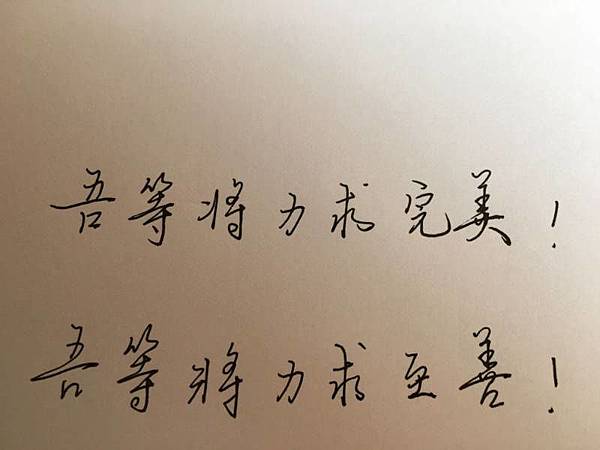 吾等将力求完美！
吾等将力求至善！